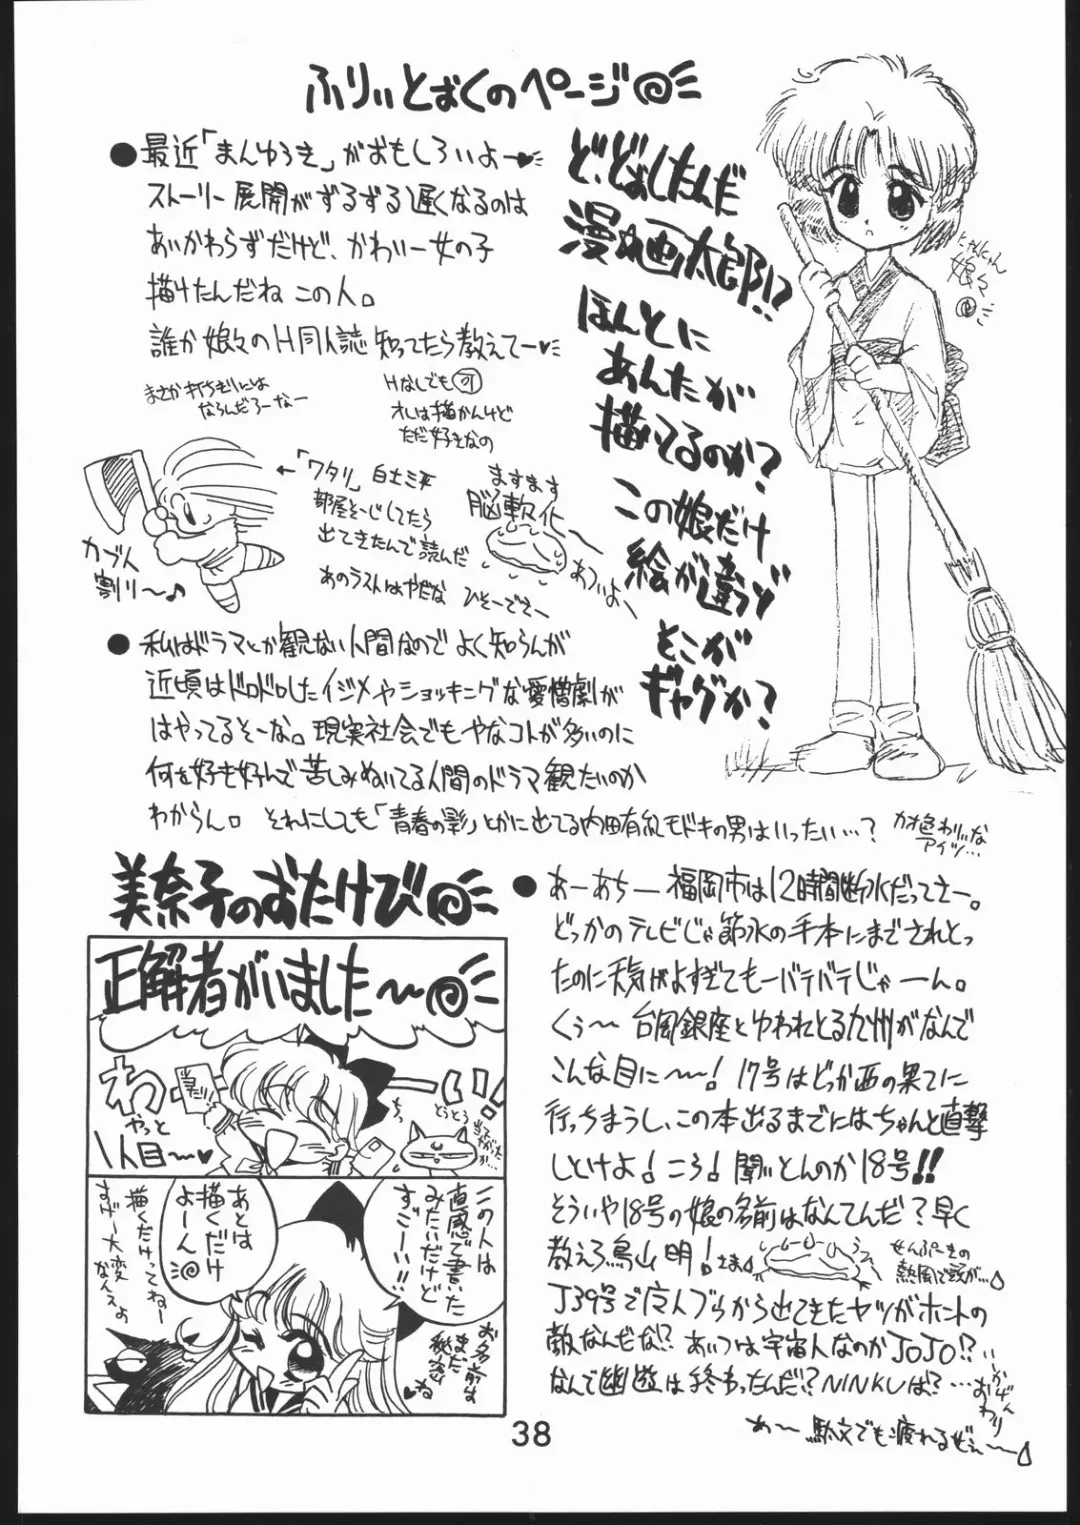 ふりぃとぉくのページ
●最近「まんゆうき」がおもしろいよー
ストーリー展開がずるずる遅くなるのは
あいかわらずだけど、かわいー女の子
描けたんだね この人。
誰か娘々のH同人誌知ってたら教えてー
Hなしでも可
オレは描かんけど
ただ好きなの
ど、どぉしたんだ
漫☆画太郎!?
ほんとに
あんたが
描いてるのか?
この娘だけ
絵が違うゾ
もこがギャグか?
にゃんにゃん
娘々
←「ワタリ」白土三平
部屋そーじしてたら
出てきたんで読んだ
あのラストはやだな
カブト
割り〜♪
ますます
脳軟化
あついよ
●私はドラマとか観ない人間なので よく知らんが
近頃はドロドロしたイジメやショッキングな愛憎劇が
はやってるそーな。現実社会でもやなコトが多いのに
何を好き好んで苦しみぬいてる人間のドラマ観たいのか
わからん。 それにしても「青春の影」とかに出てる内田有紀モドキの男はいったい…?
カオ色わりいな
アイツ…
美奈子のおたけび
正解者がいました〜
わーい!!
やっと
1人目〜
とうとう
この人は
直感で書いた
みたいだけど
すごーい!!
お名前は
まだ
秘密
ね
あとは
描くだけ
よーん
描くだけってねー
すげー大変
なんスよ
●あーあちー 福岡市は12時間断水だってさー。
どっかのテレビじゃ節水の手本にまでされとっ
たのに天気がよすぎてもーバテバテじゃーーん。
くぅ〜 台風銀座とゆわれとる九州がなんで
こんな目に〜〜! 17号はどっか西の果てに
行っちまうし、この本出るまでにはちゃんと直撃
しとけよ!ころ!聞いとんのか18号!!
そういや18号の娘の名前はなんてんだ?早く
教えろ鳥山明!さま
せんぷーきの
熱風で頭が…
J39号で仄人ブウから出てきたヤツがホントの
敵なんだな!? あいつは宇宙人なのかJOJO!?
なんで幽遊は終わったんだ!? NINKUは?…
おわり
あ〜 駄文でも疲れるぜぇ〜
38